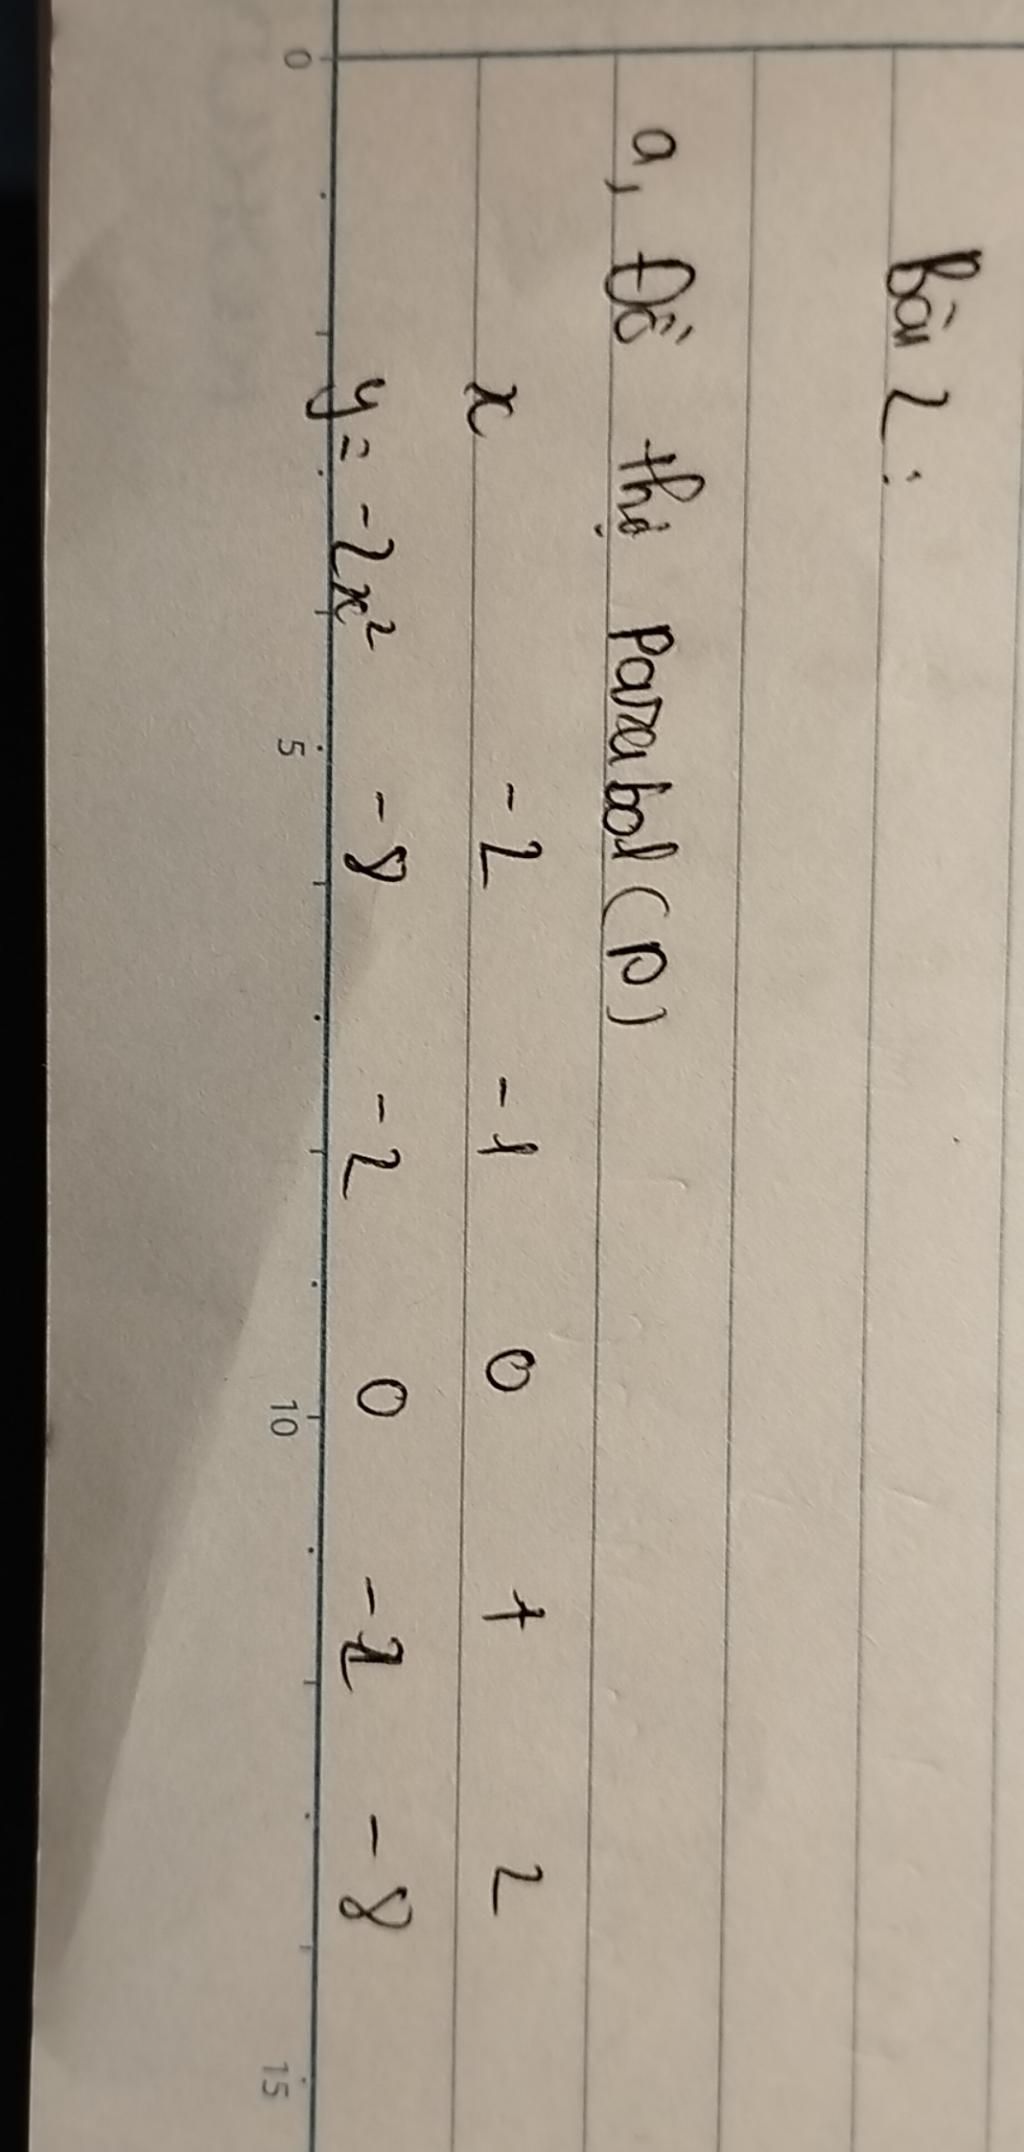 Bài 2:
a, Đồ thị parabol (P)
x -2 -1 0 1 2
y = -2x² -8 -2 0 -2 -8
0 5 10 15